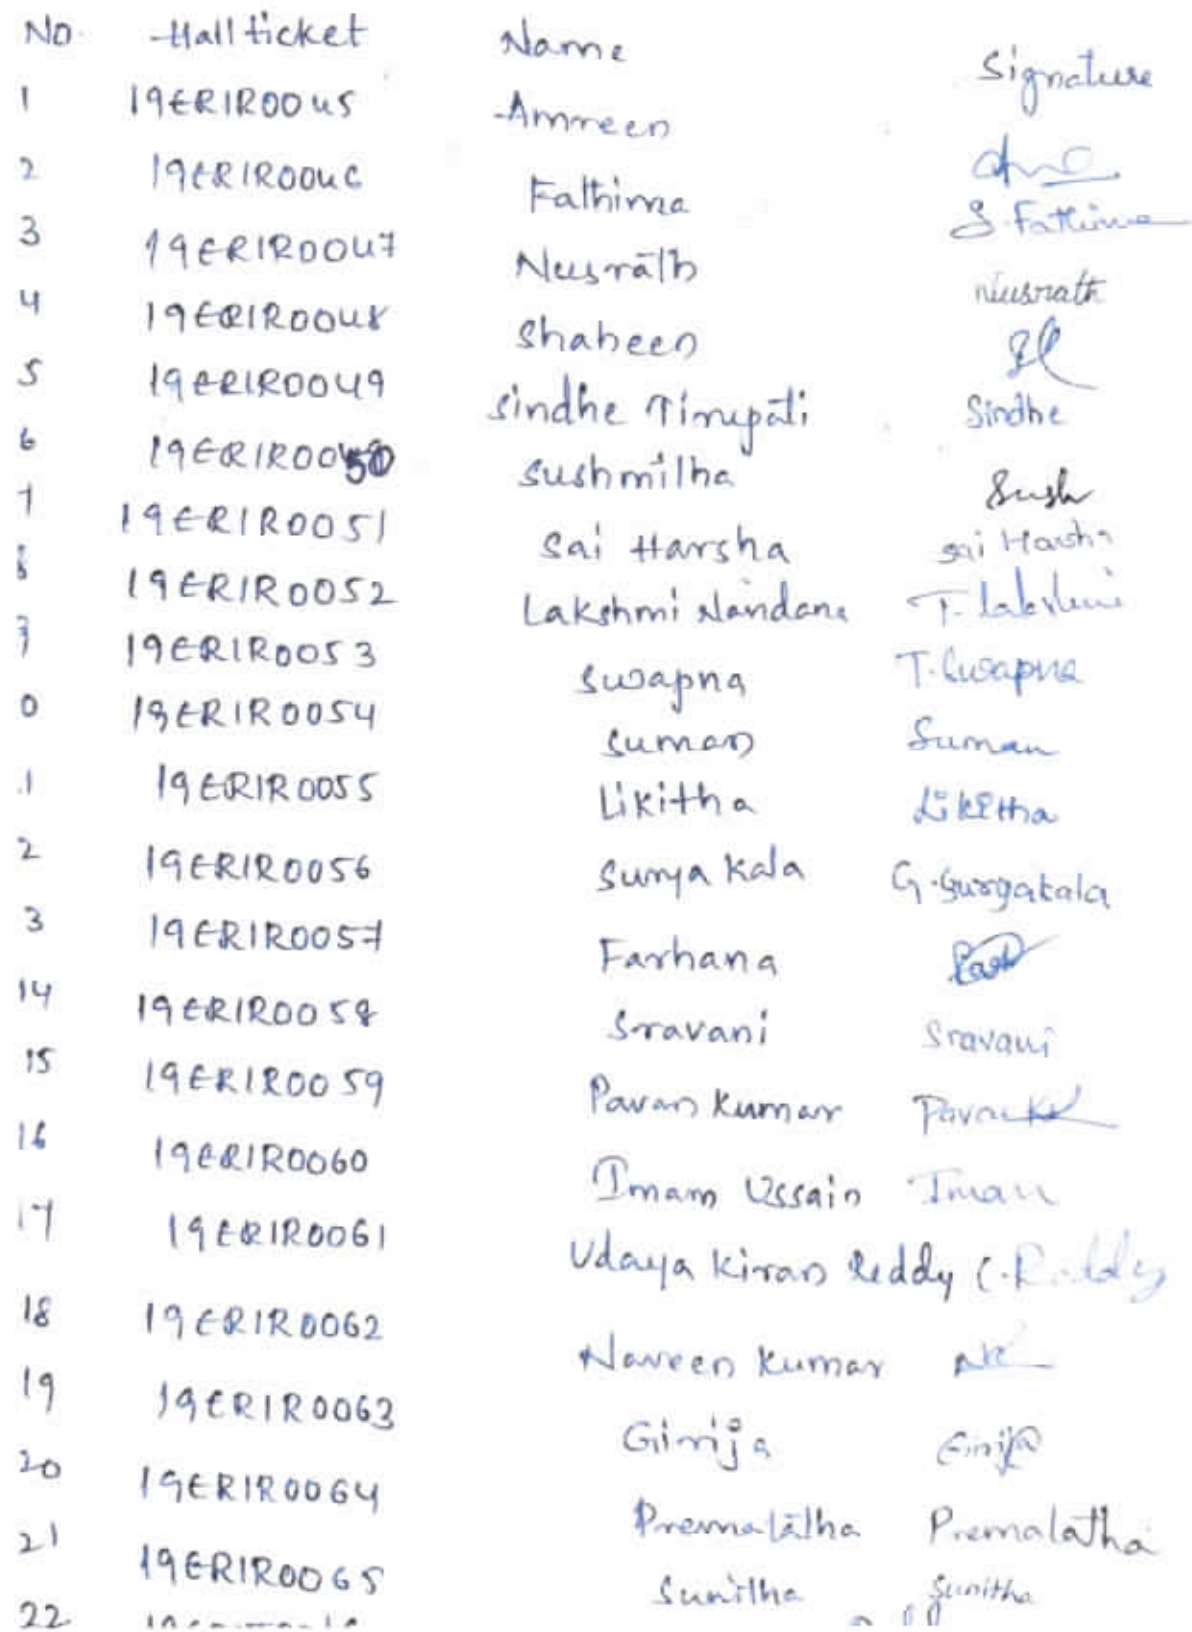 No. Hall ticket Name Signature
1 19ERIR0045 Amreen
2 19ERIR0046 Fathima S. Fathima
3 19ERIR0047 Nusrath Nusrath
4 19ERIR0048 Shaheen
5 19ERIR0049 Sindhe Tirupati Sindhe
6 19ERIR0050 Sushmitha Sush
7 19ERIR0051 Sai Harsha Sai Harsha
8 19ERIR0052 Lakshmi Nandana T. Lakshmi
19ERIR0053 Swapna T. Swapna
0 19ERIR0054 Suman Suman
1 19ERIR0055 Likitha Likitha
2 19ERIR0056 Surya Kala G. Suryakala
3 19ERIR0057 Farhana
14 19ERIR0058 Sravani Sravani
15 19ERIR0059 Pavan Kumar
16 19ERIR0060 Imam Ussain Imam
17 19ERIR0061 Udaya Kiran Reddy C. Reddy
18 19ERIR0062 Naveen Kumar NK
19 19ERIR0063 Girija Girija
20 19ERIR0064 Premalatha Premalatha
21 19ERIR0065 Sunitha Sunitha
22